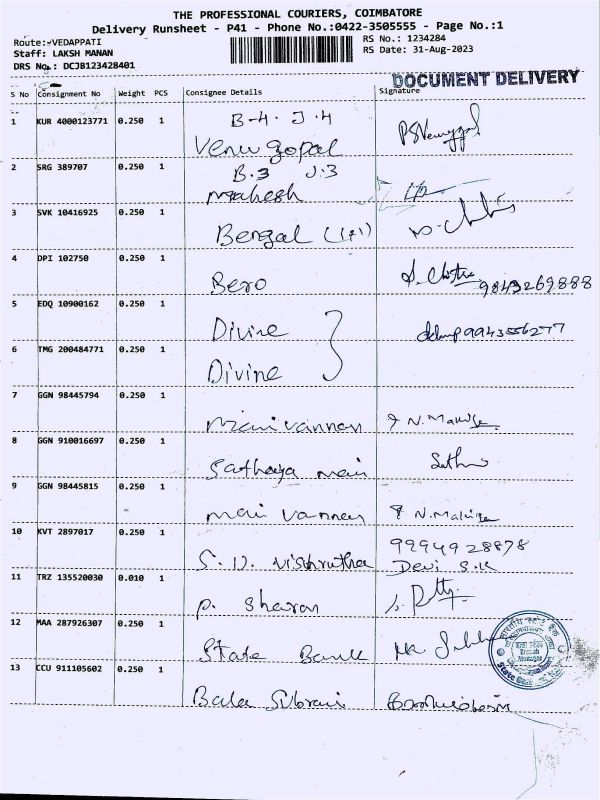 THE PROFESSIONAL COURIERS, COIMBATORE
Delivery Runsheet - P41 - Phone No.:0422-3505555 - Page No.:1
Route:-VEDAPPATI
RS No.: 1234284
Staff: LAKSH MANAN
RS Date: 31-Aug-2023
DRS No.: DCJB123428401
DOCUMENT DELIVERY
S No Consignment No Weight PCS Consignee Details Signature
1 KUR 4000123771 0.250 1 B-4. J.4
Venu gopal
2 SRG 389707 0.250 1 B.3 J.3
Mahesh
3 SVK 10416925 0.250 1
Bengal (1+1)
4 DPI 102750 0.250 1
Bero 9843269888
5 EDQ 10900162 0.250 1
Divine 9943556277
6 TMG 200484771 0.250 1
Divine
7 GGN 98445794 0.250 1
Manivannan
8 GGN 910016697 0.250 1
Sathaya Mani
9 GGN 98445815 0.250 1
Mani vannan
10 KVT 2897017 0.250 1 9994928878
S. D. Vishrutha Devi S.K
11 TRZ 135520030 0.010 1
P. Sharan
12 MAA 287926307 0.250 1
State Bank
13 CCU 911105602 0.250 1
Bala